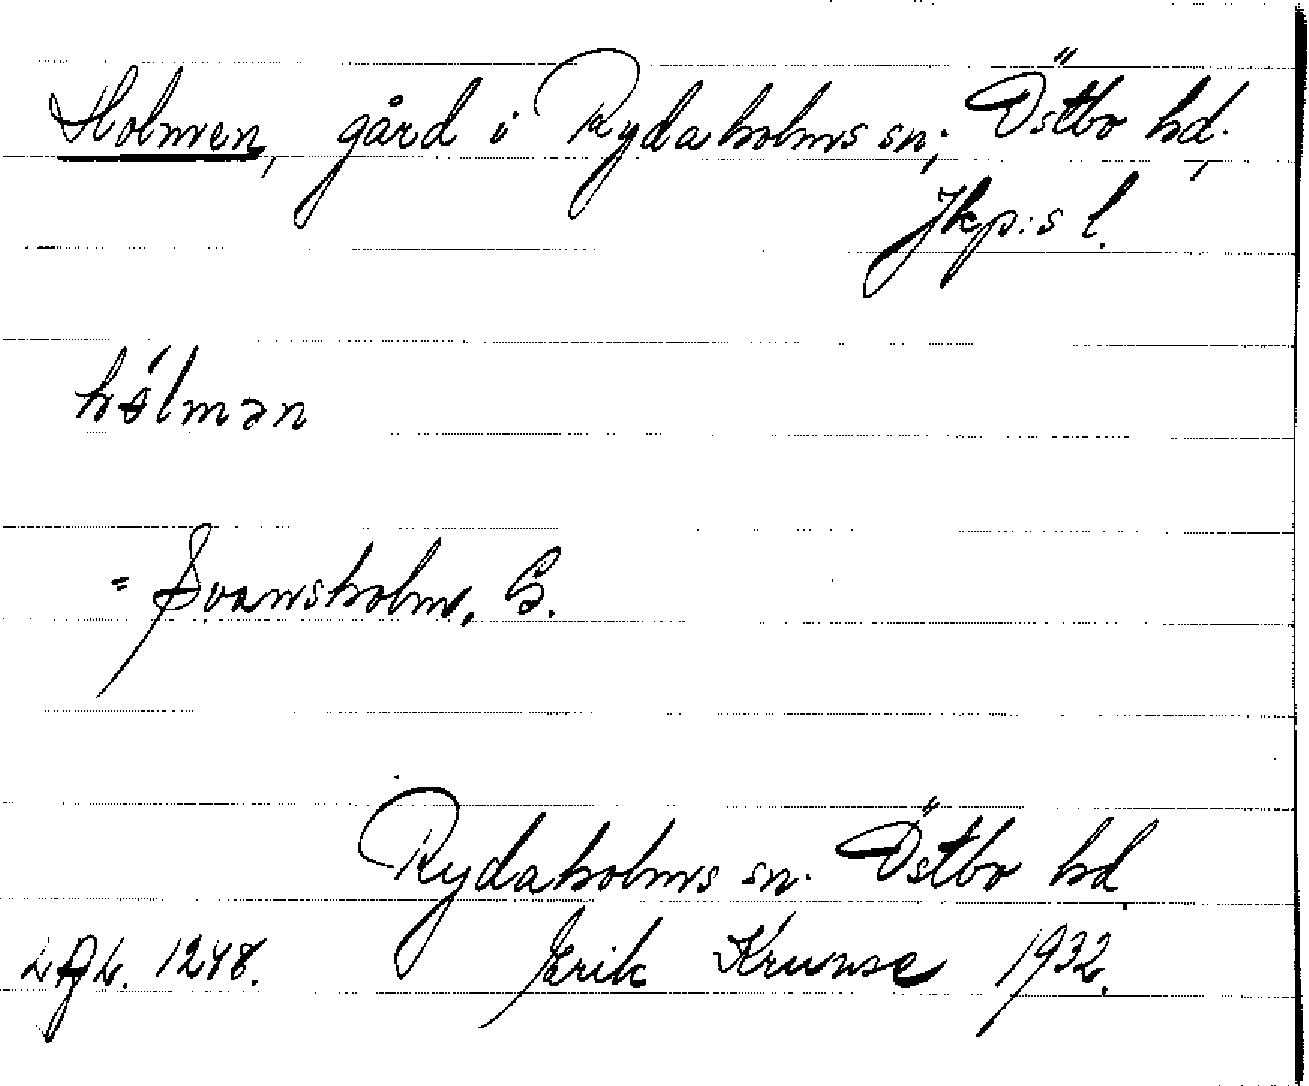 Holmen, gård i Rydaholms sn; Östbo hd.,
Jkp:s l.
hólmən
= Svansholm, S.
Rydaholms sn. Östbo hd.
1248. Erik 1932.